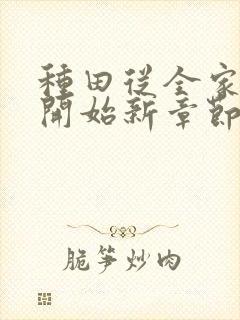 種田從全家
開始新章節
脆筍炒肉